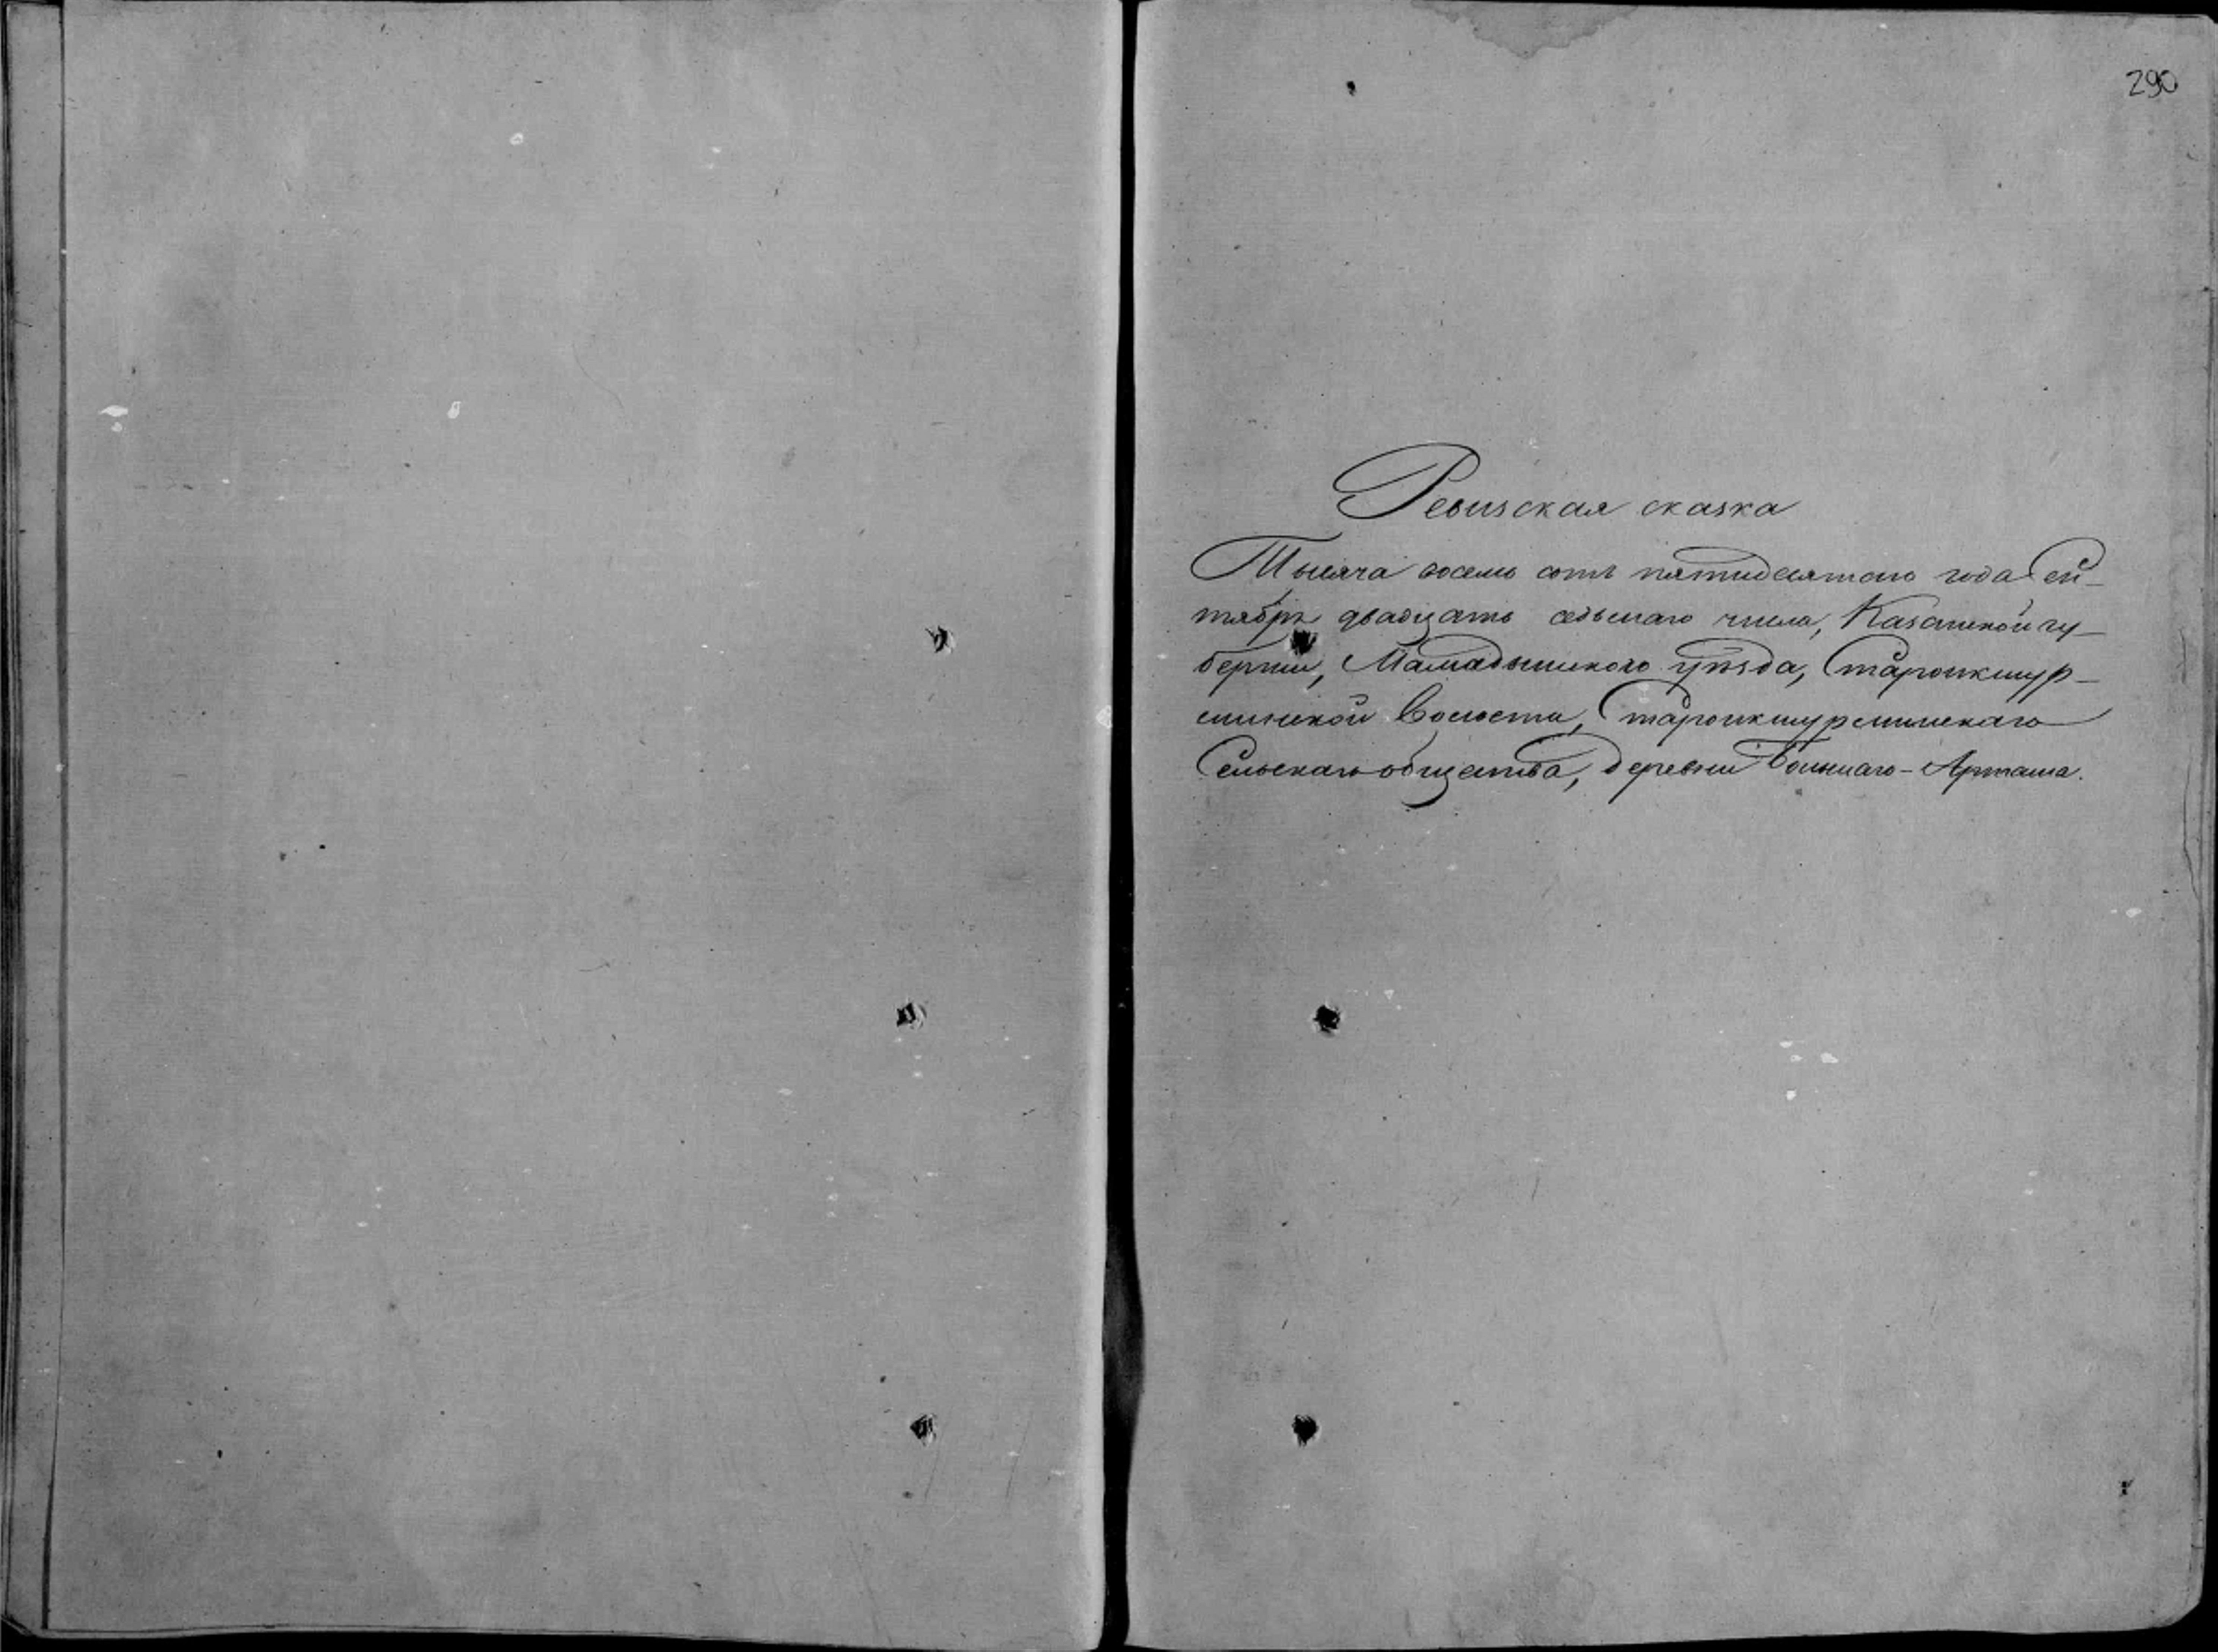 290
Ревизская сказка
Тысяча восемь сотъ пятидесятого года Сен-
тября двадцать седьмаго числа, Казанской гу-
берніи, Мамадышскаго уѣзда, Староикшур-
минской Волости, Староикшурминскаго
Сельскаго общества, деревни Большаго-Арташа.